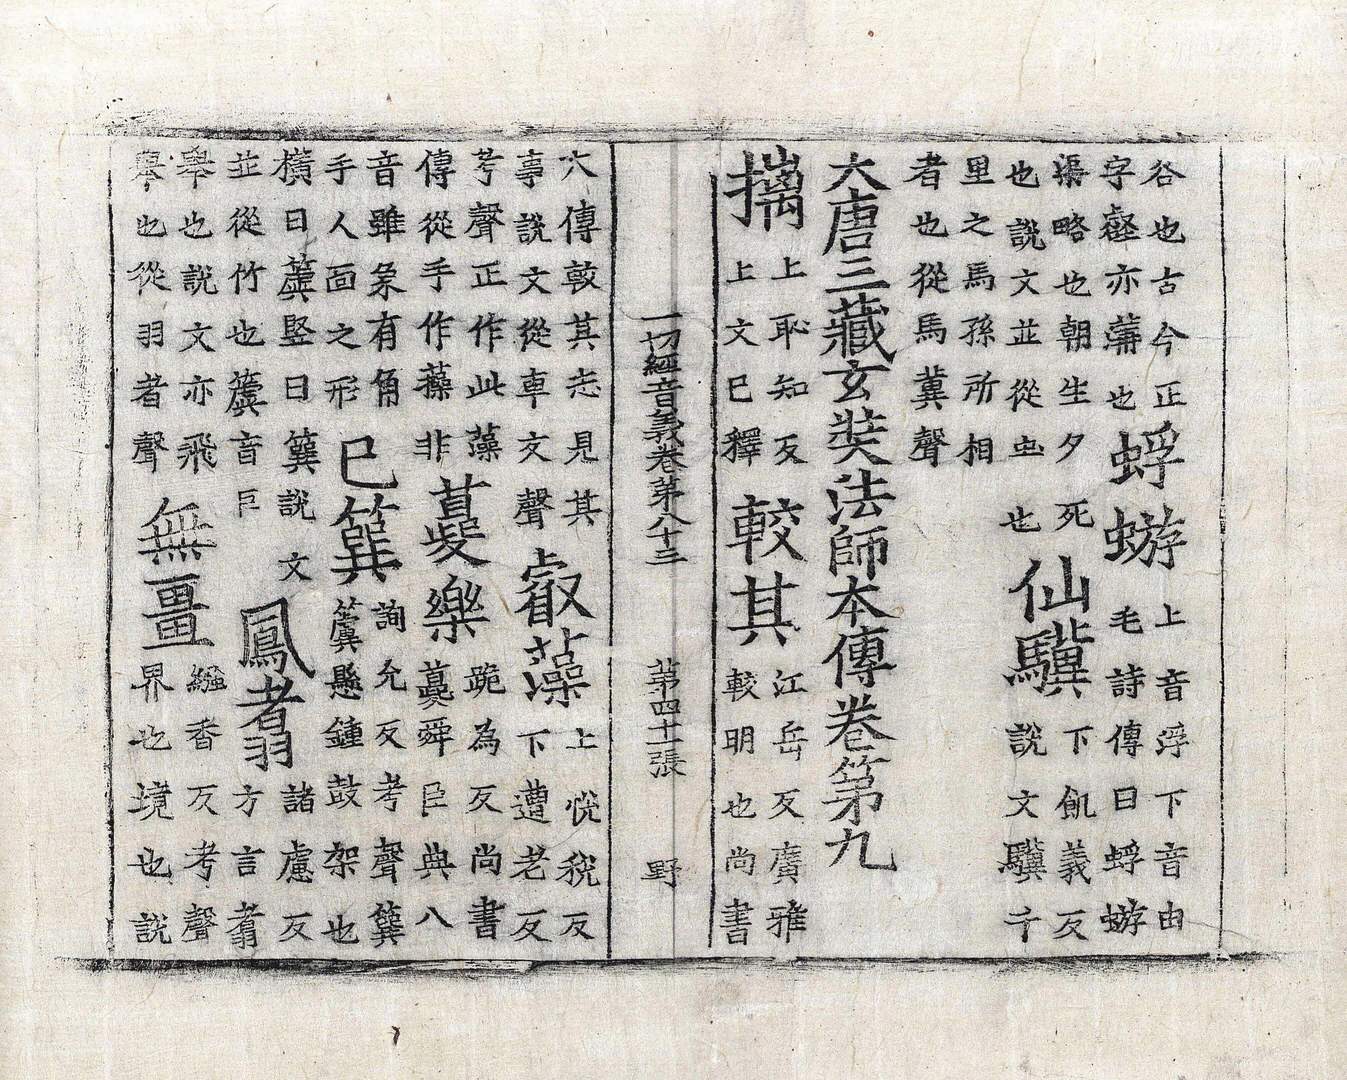 谷也古今正蜉蝣上音浮下音由
字壑亦𧅁也蜉蝣毛詩傳曰蜉蝣
渠略也朝生夕死仙驥下飢義反
也說文並從虫也仙驥說文驥千
里之馬孫所相
者也從馬冀聲
大唐三藏玄奘法師本傳卷第九
摛上恥知反較其江岳反廣雅
上文已釋較其較明也尚書
一切經音義卷第八十三 第四十一張 野
大傳較其志見其叡藻上悅稅反
事說文從車文聲叡藻下遭老反
考聲正作此藻蕤樂跪為反尚書
傳從手作藻非夔樂夔舜臣典八
音雖象有角已簨詢允反考聲簨
手人面之形已簨簴懸鍾鼓架也
橫曰簨豎曰簴說文鳳翥諸慮反
並從竹也簴音巨鳳翥方言翥
舉也說文亦飛無畺繈香反考聲
舉也從羽者聲無畺界也境也說